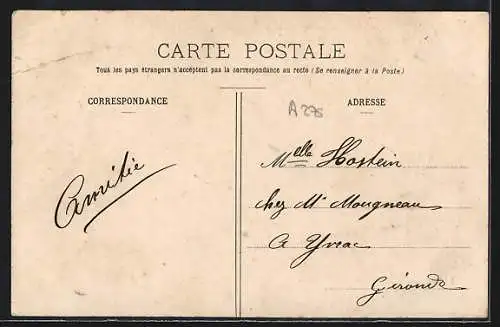 CARTE POSTALE
Tous les pays étrangers n'acceptent pas la correspondance au recto (Se renseigner à la Poste)
CORRESPONDANCE
ADRESSE
A 275
Amitié
Melle Hostein
chez Mr Mougneau
a Yvrac
Gironde